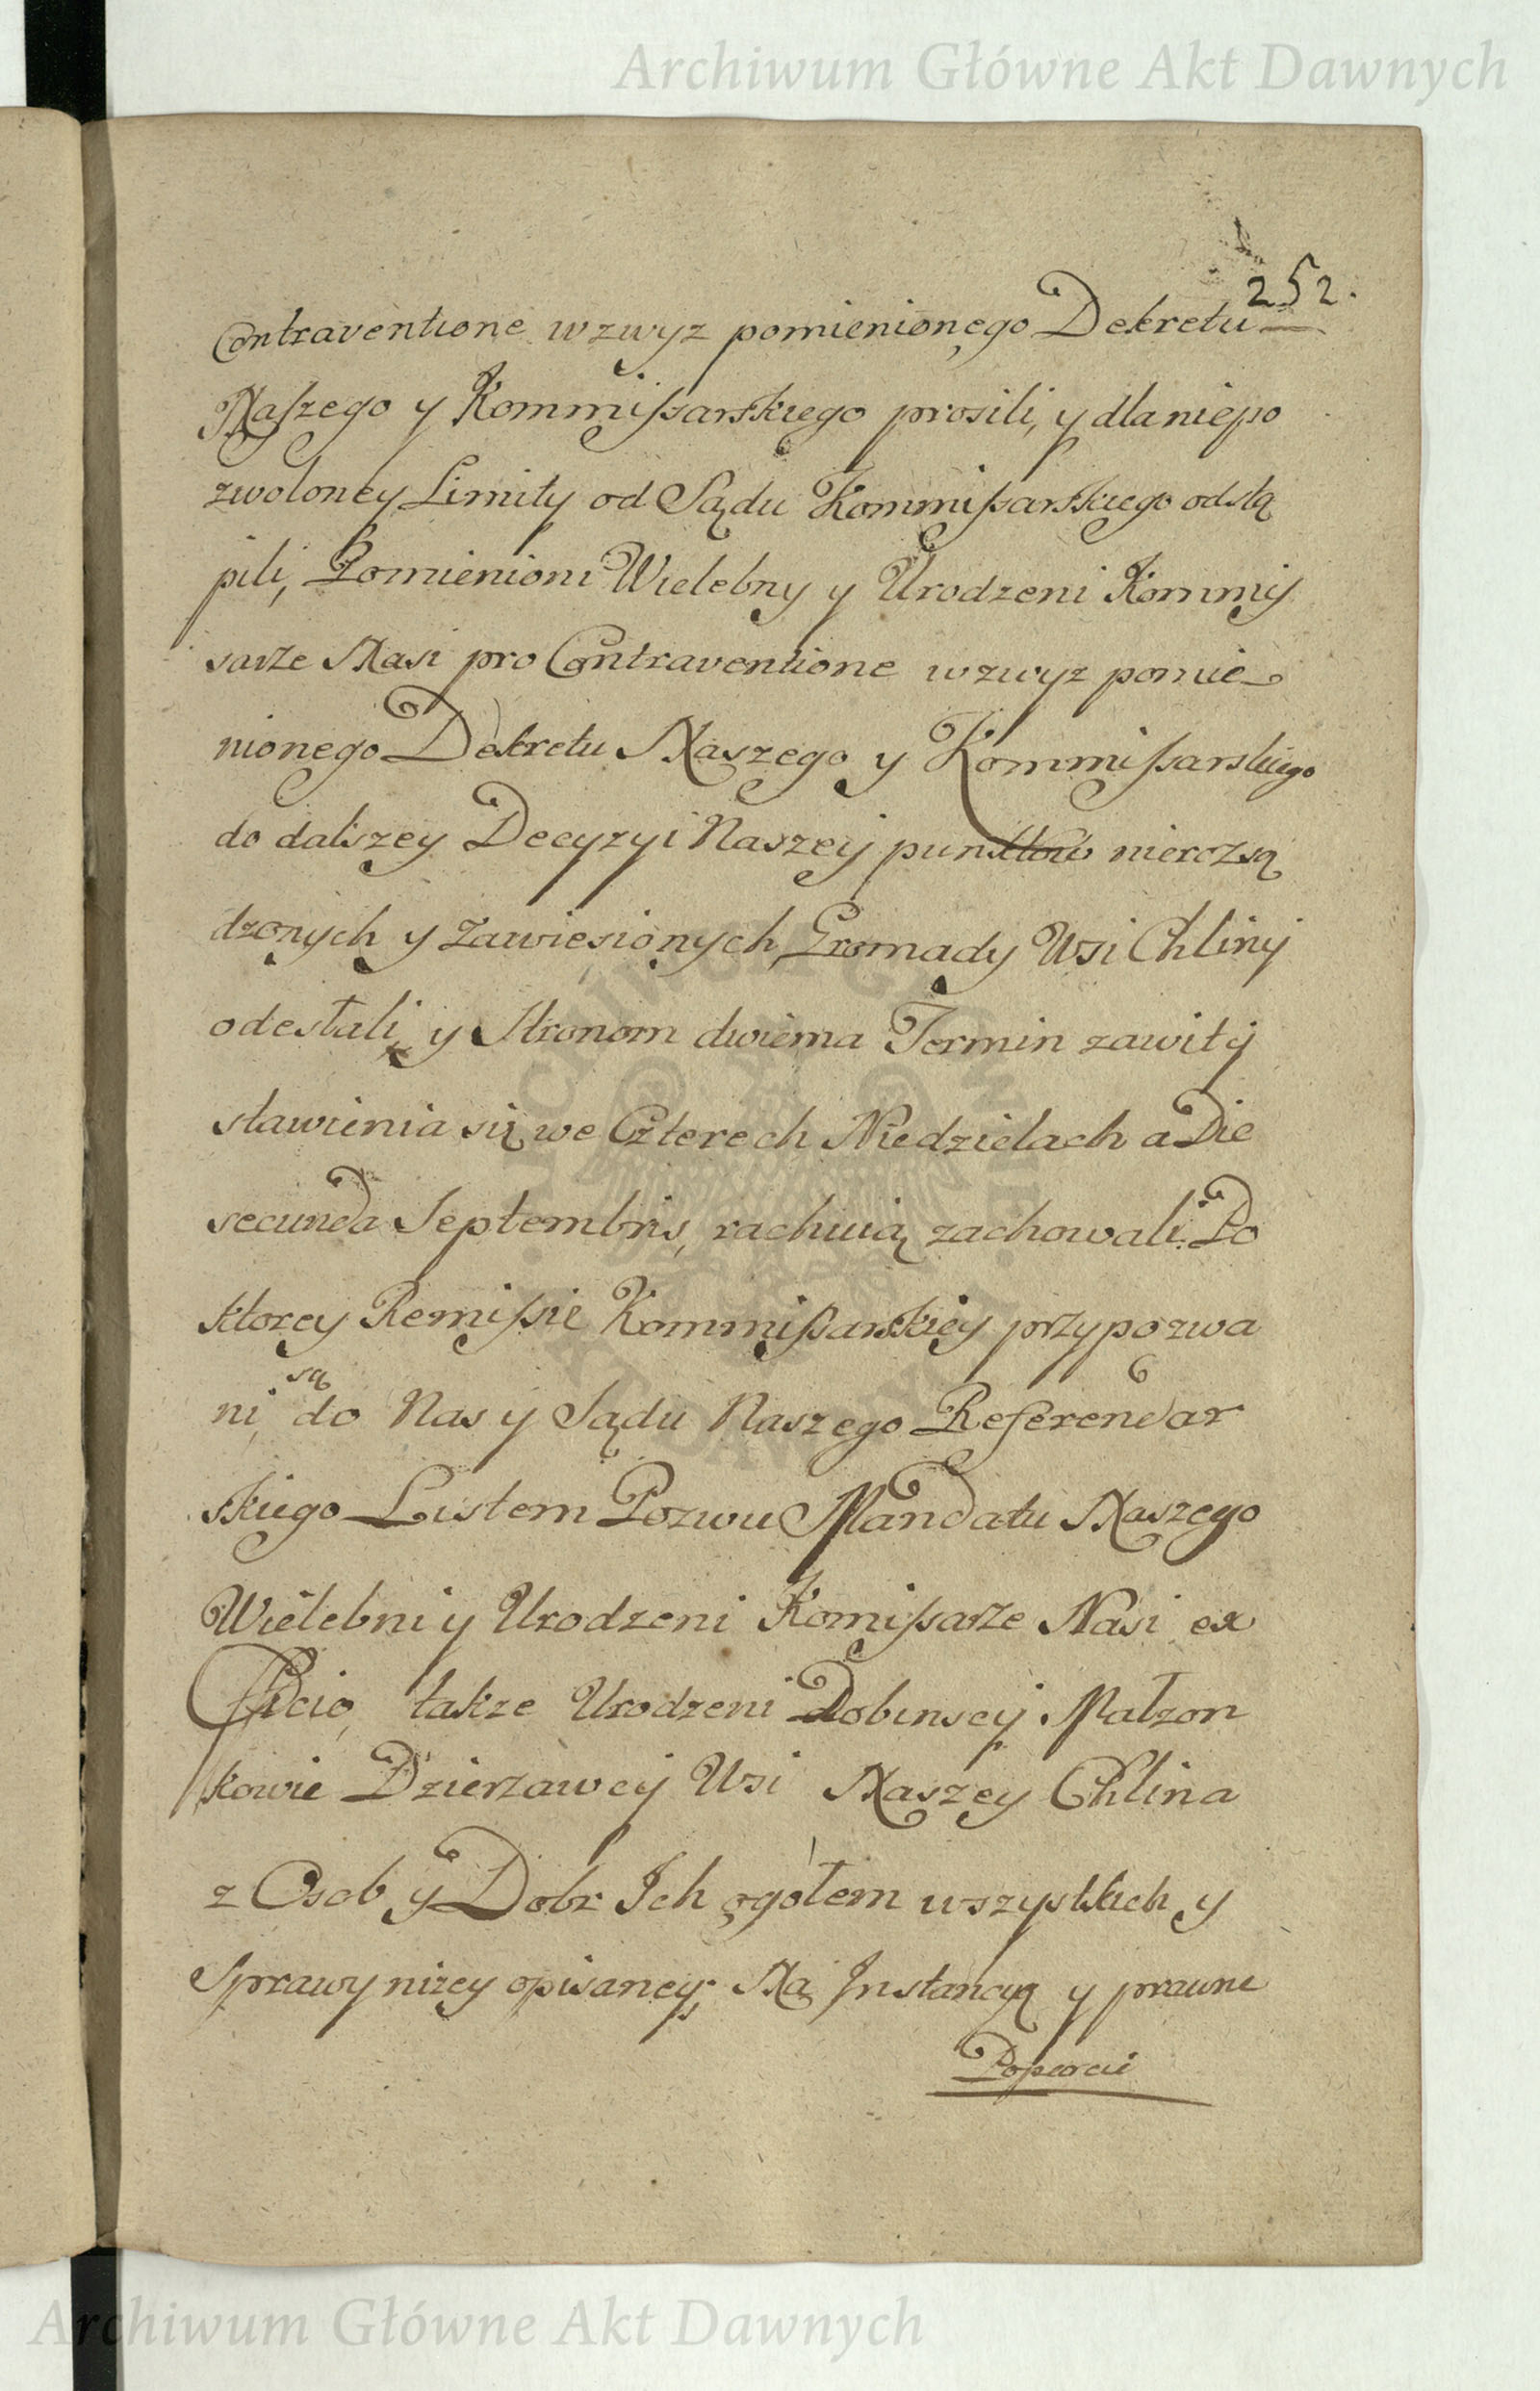 Archiwum Główne Akt Dawnych
252.
Contraventione wzwyz pomienionego Dekretu
Naszego y Kommissarskiego prosili, y dla niepo
zwoloney Limity od Sądu Kommissarskiego odstą
pili, Pomienioni Wielebny y Urodzeni Kommis
sarze Nasi pro Contraventione wzwyz pomie
nionego Dekretu Naszego y Kommissarskiego
do dalszey Decyzyi Naszey punktow nierozsą
dzonych y Zawiesionych, Gromady Wsi Chliny
odesłali, y Stronom dwiema Termin zawity
stawienia się we Czterech Niedzielach a Die
secunda Septembris, rachuiąc zachowali. Po
ktorey Remissie Kommissarskiey przypozwa
ni są do Nas y Sądu Naszego Referendar
skiego Listem Pozwu Mandatu Naszego
Wielebni y Urodzeni Komissarze Nasi ex
Officio, także Urodzeni Dobinscy Małzon
kowie Dzierzawcy Wsi Naszey Chlina
z Osob y Dobr Ich ogółem wszystkich y
Sprawy nizey opisaney; Na Instancyą y prawne
Poparcie
Archiwum Główne Akt Dawnych